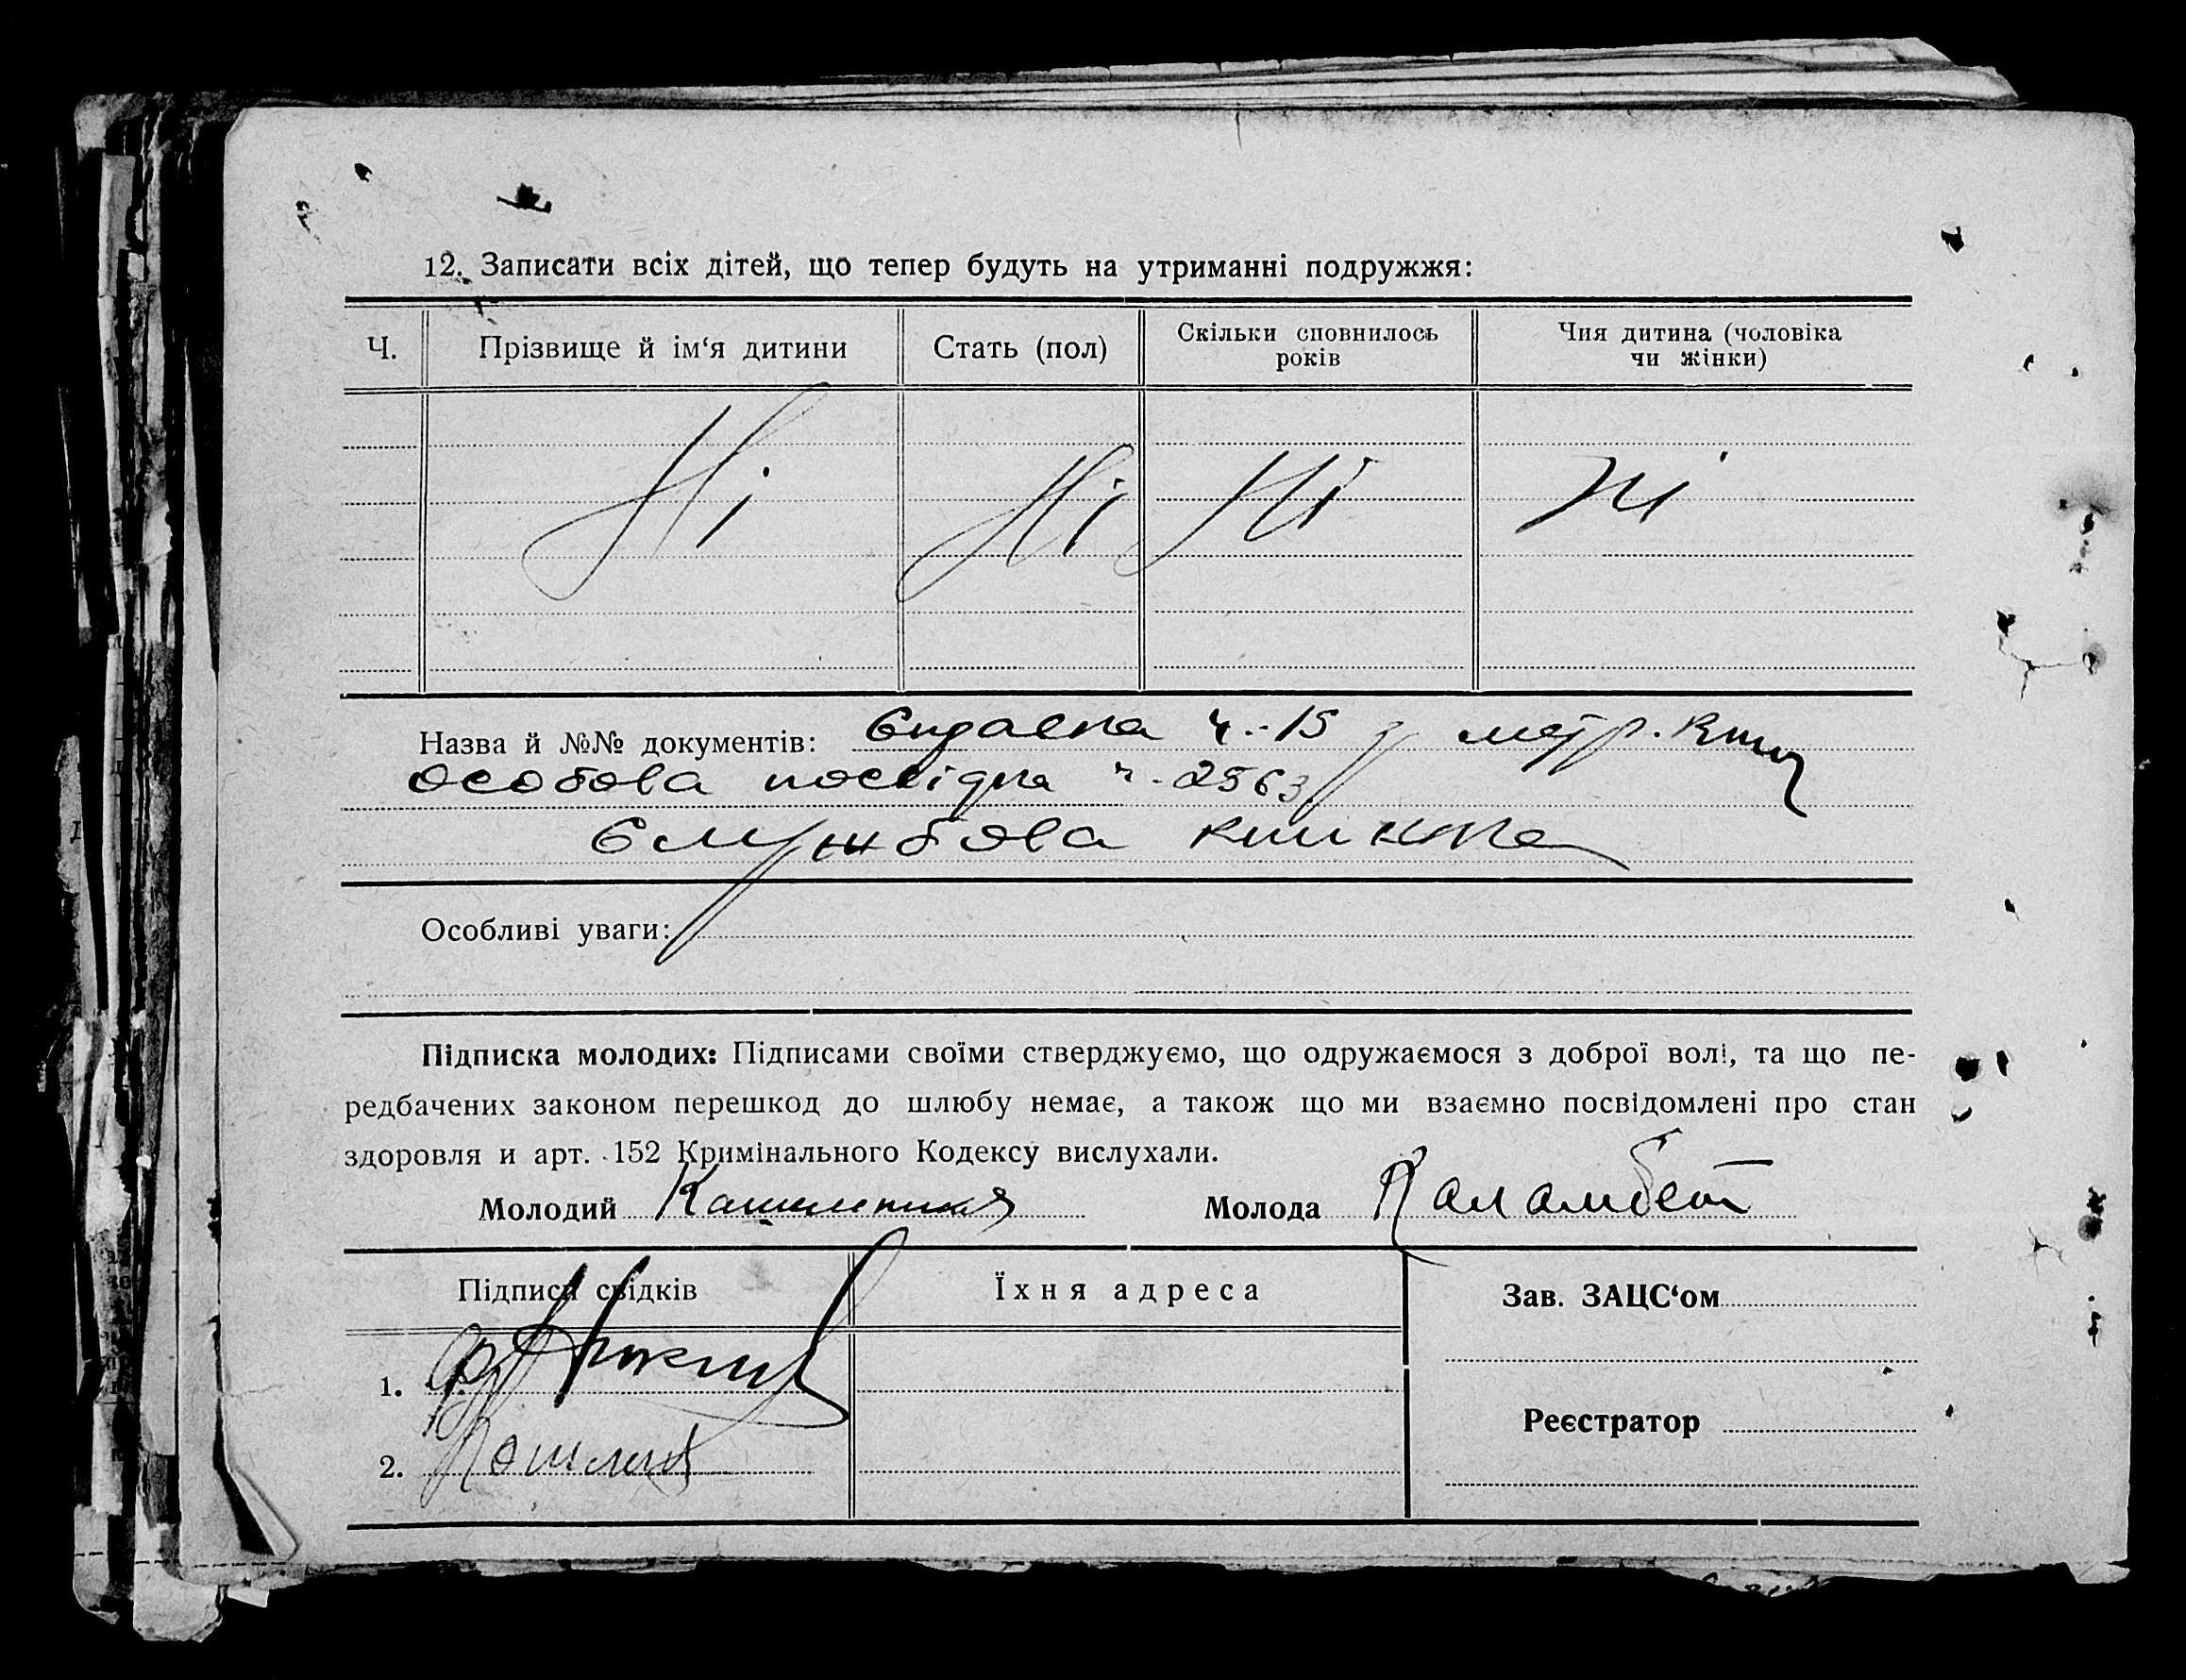 12. Записати всіх дітей, що тепер будуть на утриманні подружжя:
Ч. Прізвище й ім‘я дитини Стать (пол) Скільки сповнилось років Чия дитина (чоловіка чи жінки)
Ні Ні Ні Ні
Назва й №№ документів: ч. 15 з метр.
особова посвідка ч. 2563
службова книжка
Особливі уваги:
Підписка молодих: Підписами своїми стверджуємо, що одружаємося з доброї волі, та що пе-
редбачених законом перешкод до шлюбу немає, а також що ми взаємно посвідомлені про стан
здоровля и арт. 152 Кримінального Кодексу вислухали.
Молодий Молода Каламбет
Підписи свідків Їхня адреса Зав. ЗАЦС‘ом
1.
Реєстратор
2.